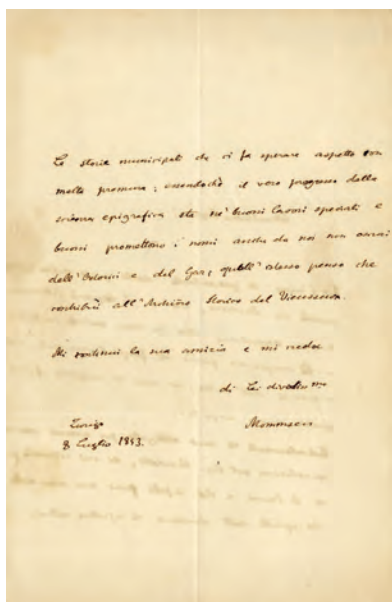 Le storie municipali che ci fa sperare aspetto con
molta premura; essendochè il vero progresso della
scienza epigrafica sta ne' buoni lavori speciali e
buoni promettono i nomi anche da noi non oscuri
dell'Odorici e del Gar, quell'stesso penso che
contribuì all'Archivio Storico del Vieusseux.
Mi continui la sua amicizia e mi creda
di Lei divotissmo
Zurigo
8 Luglio 1853.
Mommsen